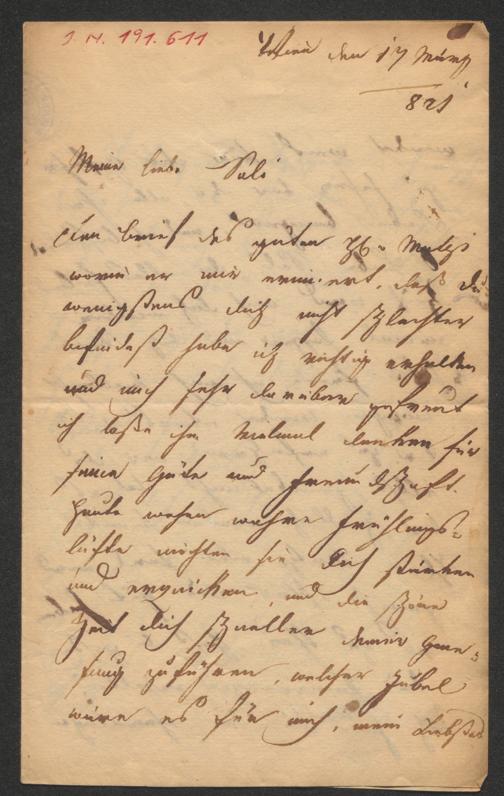 I N. 191.611
Wien den 17 März
821
Meine liebe Sali
Den brief des guten H. Malzi
worin er mir erinnert, daß du
wenigstens dich nicht schlechter
befindest habe ich richtig erhalten
und mich sehr darüber gefreut
ich laße ihm vielmal danken für
seine Güte und Freundschaft.
Heute wehen wahre Frühlings-
lüfte möchten sie dich stärken
und erquicken, und die schöne
Zeit dich schneller deiner Gene-
sung zuführen, welcher Jubel
wäre es für mich, mein Liebstes